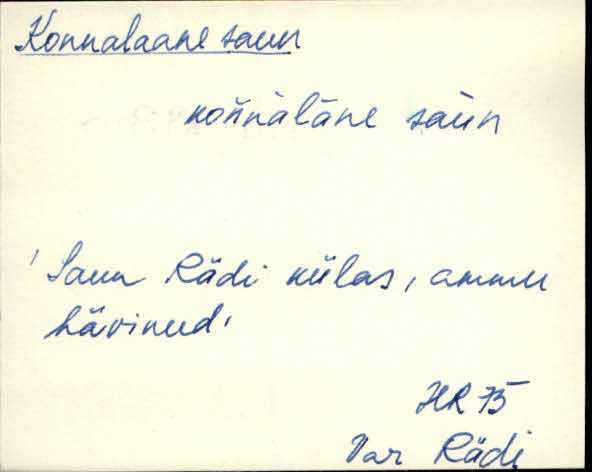 Konnalaane saun
koǹnàlàne sàun
' Saun Rädi külas, ammu
hävinud.
HR 75
Var Rädi